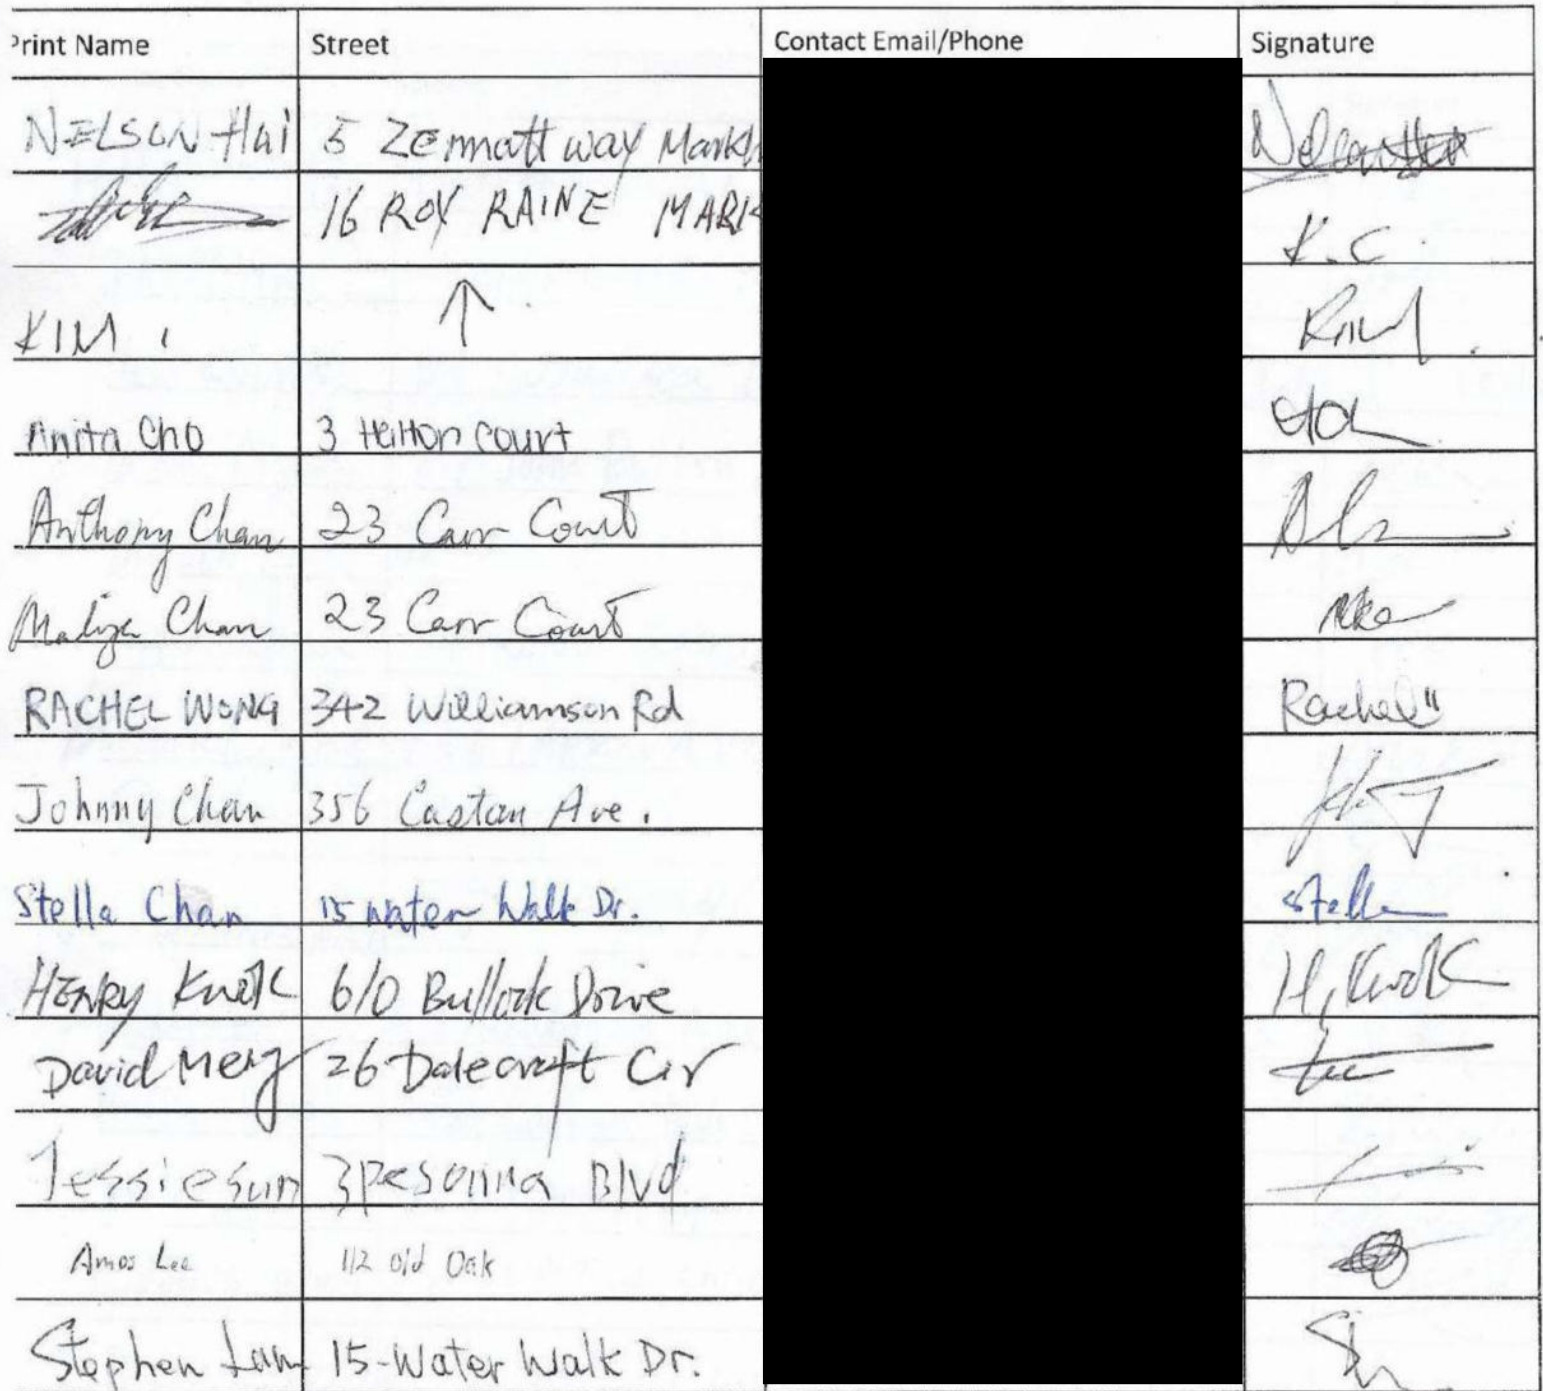 Print Name Street Contact Email/Phone Signature
NELSON Hui 5 Zermatt way Markh
16 ROY RAINE MARK K.C.
KIM ↑ Kim
Anita Cho 3 Hilton court
Anthony Chan 23 Carr Court
Chan 23 Carr Court
RACHEL WONG 342 Williamson Rd Rachel
Johnny Chan 356 Castan Ave.
Stella Chan 15 water Walk Dr. Stella
HENRY KWOK 610 Bullock Drive H. Kwok
David Meng 26 Dalecroft Cir
Jessie sun Blvd
Amos Lee 112 Old Oak
Stephen Lam 15-Water Walk Dr.